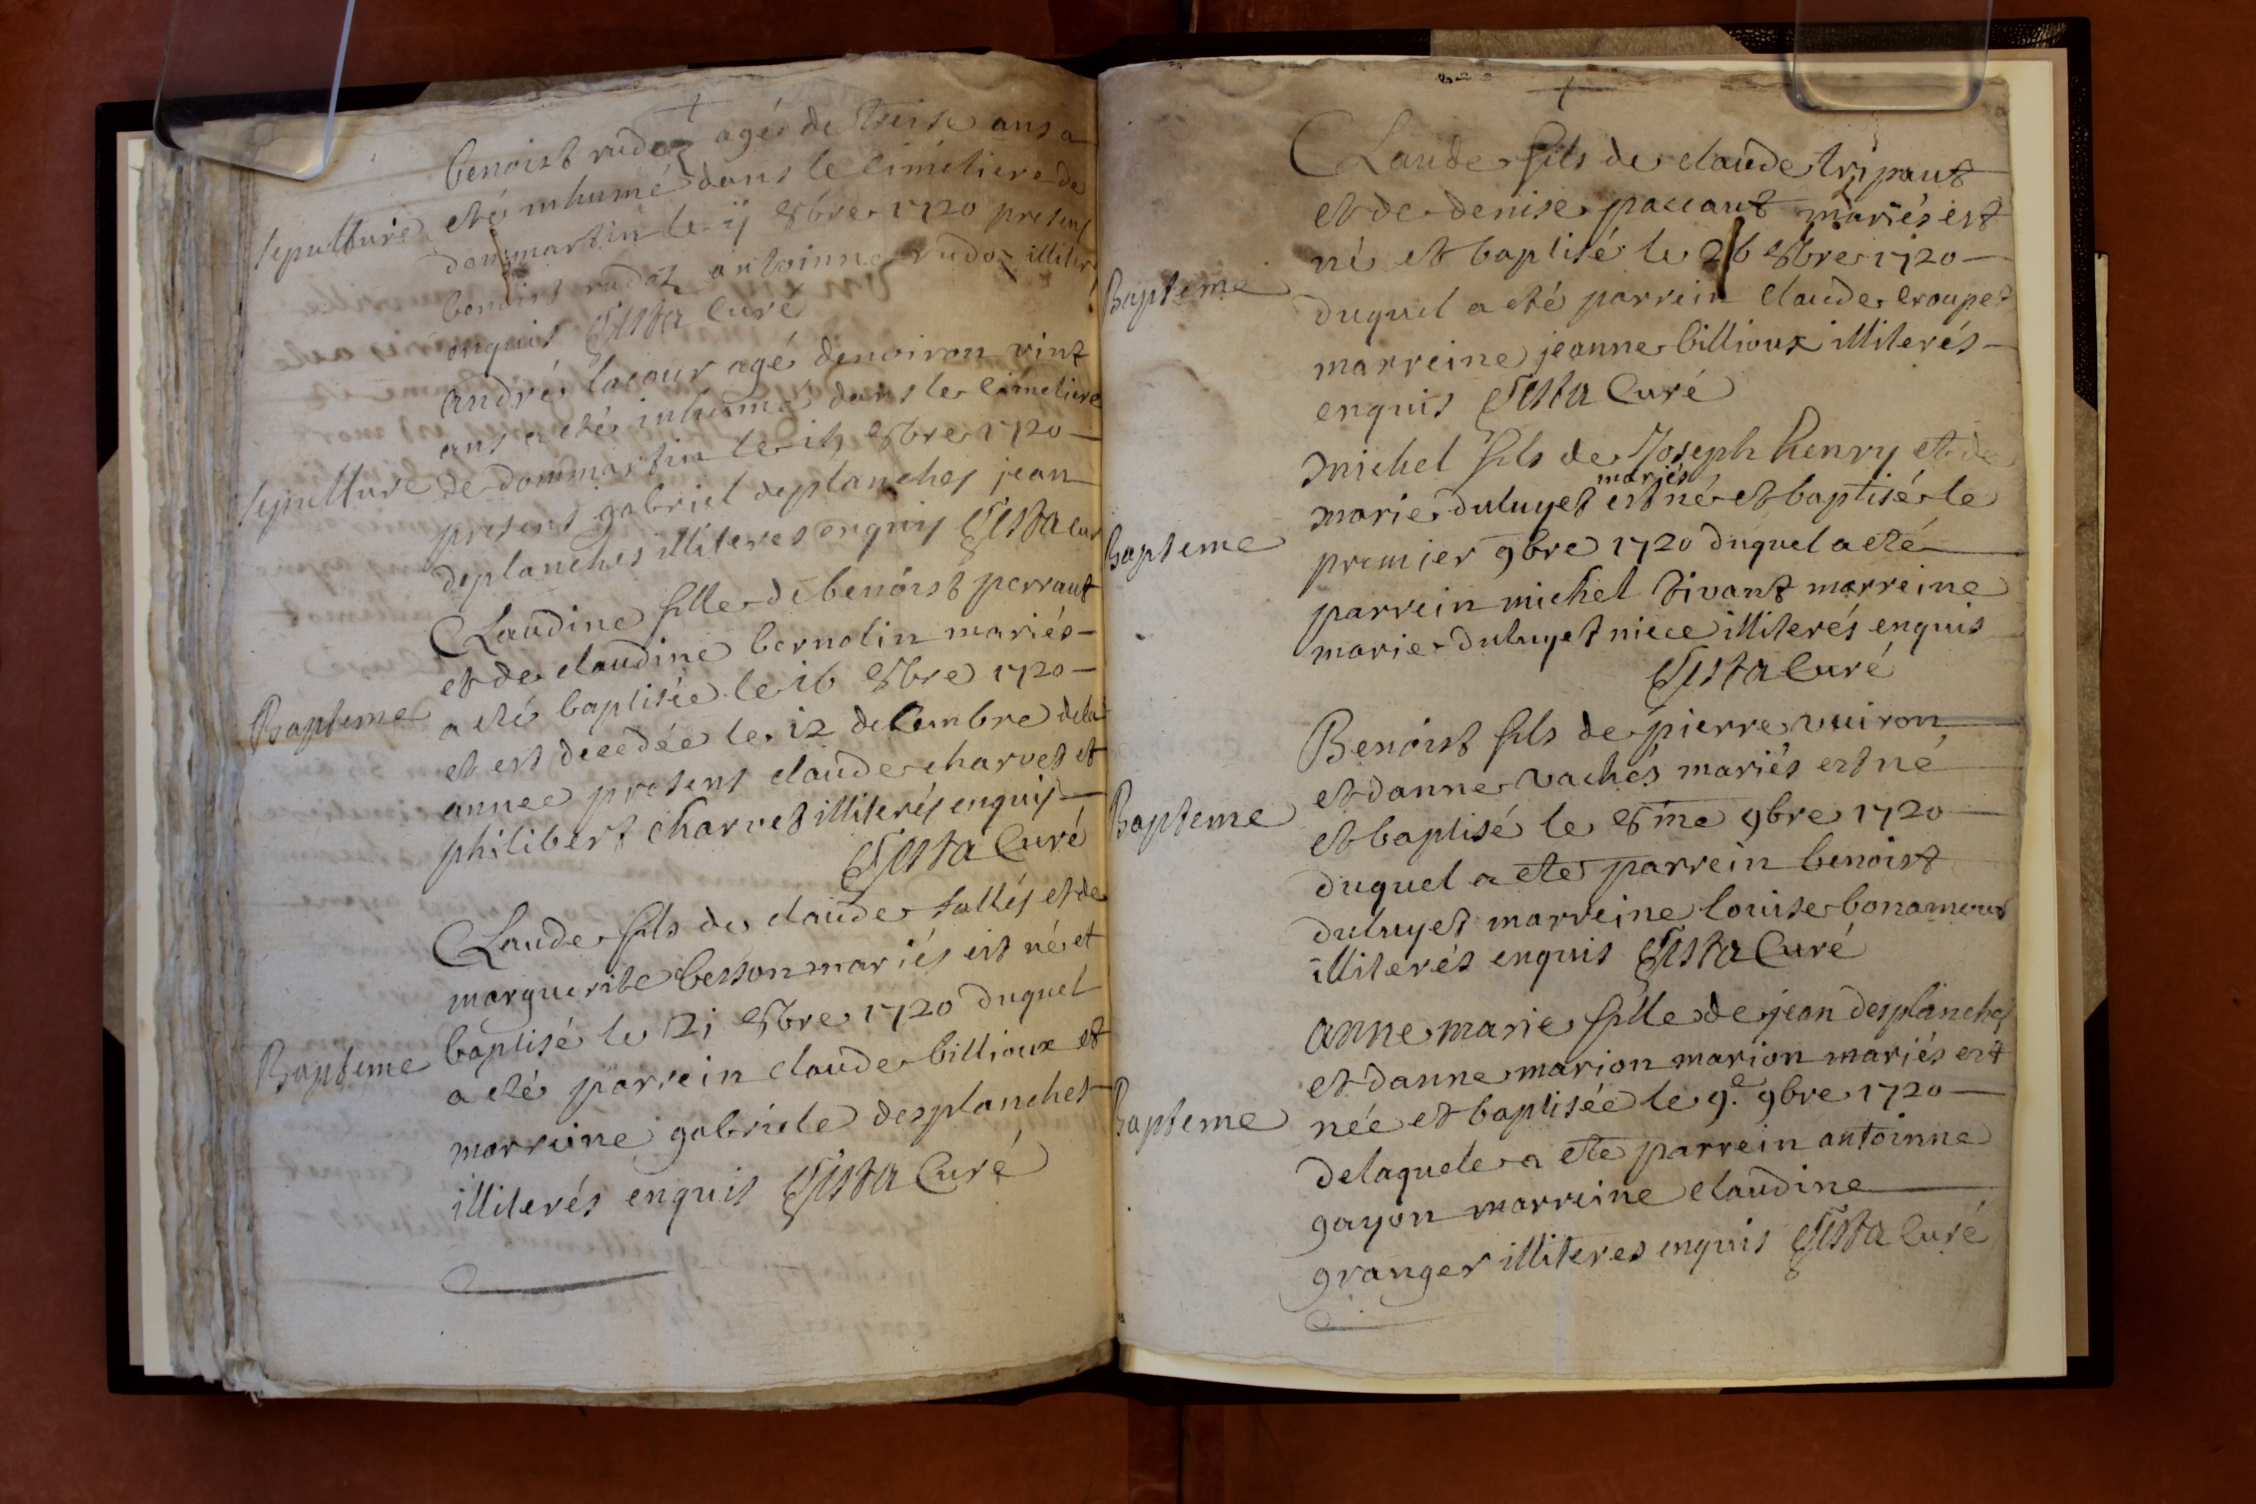 benoist rudoz agé de treise ans a
Sepulture
eté inhumé dans le cimetiere de
dommartin le ij 8bre 1720 presens
benoist rudoz antoinne rudoz illiter
enquis Testa Curé
andré lacour agé denviron vint
ans a eté inhumé dans le cimetiere
Sepulture
de dommartin le 8bre 1720
presens gabriel deplanches jean
deplanches illiteres enquis Testa Cur
Claudine fille de benoist perraut
et de claudine bernolin mariés
Bapteme
a eté baptisée le 16 8bre 1720
et est decedée le 12 decembre dela
annee presens claude charvet et
philibert charvet illiterés enquis
Testa Curé
Claude fils de claude sallés et de
marguerite besson mariés est né et
Bapteme
baptisé le 21 8bre 1720 duquel
a eté parrein claude billioux et
marreine gabriele desplanches
illiterés enquis Testa Curé
Claude fils de claude tripaut
et de denise paccaut mariés est
Bapteme
né et baptisé le 26 8bre 1720
duquel a eté parrein Claude croupet
marreine jeanne billioux illiterés
enquis Testa Curé
michel fils de Joseph henry et de
mariés
marie duluyet est né et baptisé le
Bapteme
premier 9bre 1720 duquel a eté
parrein michel tivant marreine
marie duluyet niece illiterés enquis
Testa Curé
Benoist fils de pierre vuiron
et danne vachés mariés est né
Bapteme
et baptisé le 8me 9bre 1720
duquel a eté parrein benoist
duluyet marreine louise bonamour
illiterés enquis Testa Curé
anne marie fille de jean desplanches
et danne marion marion mariés est
Bapteme
née et baptisée le 9e 9bre 1720
delaquele a eté parrein antoinne
gayon marreine claudine
granger illiteres enquis Testa Curé